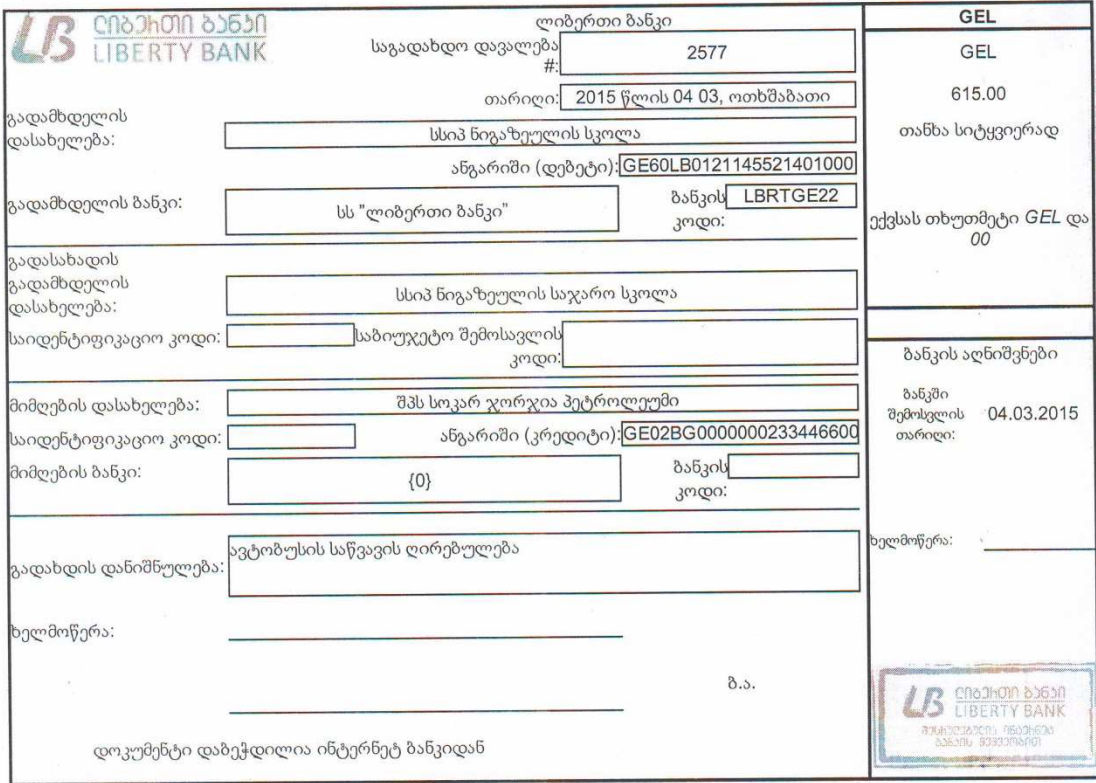 ლიბერთი ბანკი
LIBERTY BANK
ლიბერთი ბანკი
საგადახდო დავალება #: 2577
თარიღი: 2015 წლის 04 03, ოთხშაბათი
გადამხდელის დასახელება: სსიპ ნიგაზეულის სკოლა
ანგარიში (დებეტი): GE60LB0121145521401000
გადამხდელის ბანკი: სს "ლიბერთი ბანკი" ბანკის კოდი: LBRTGE22
გადასახადის გადამხდელის დასახელება: სსიპ ნიგაზეულის საჯარო სკოლა
საიდენტიფიკაციო კოდი: საბიუჯეტო შემოსავლის კოდი:
მიმღების დასახელება: შპს სოკარ ჯორჯია პეტროლეუმი
საიდენტიფიკაციო კოდი: ანგარიში (კრედიტი): GE02BG0000000233446600
მიმღების ბანკი: {0} ბანკის კოდი:
გადახდის დანიშნულება: ავტობუსის საწვავის ღირებულება
ხელმოწერა:
ბ.ა.
დოკუმენტი დაბეჭდილია ინტერნეტ ბანკიდან
GEL
GEL
615.00
თანხა სიტყვიერად
ექვსას თხუთმეტი GEL და
00
ბანკის აღნიშვნები
ბანკში შემოსვლის თარიღი: 04.03.2015
ხელმოწერა:
ლიბერთი ბანკი
LIBERTY BANK
შესრულებულია ინტერნეტ
ბანკის მეშვეობით